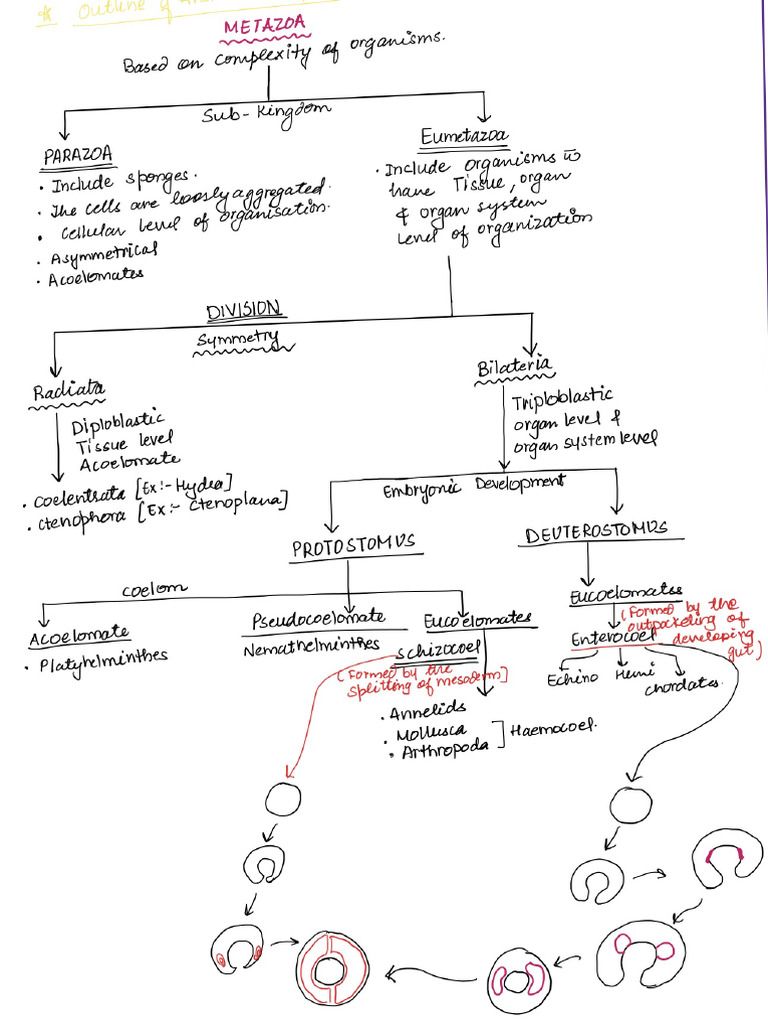 * Outline of
METAZOA
Based on complexity of organisms.
Sub-Kingdom
PARAZOA
• Include sponges.
• The cells are loosly aggregated.
• Cellular level of organisation.
• Asymmetrical
• Acoelomates
Eumetazoa
• Include organisms w
have Tissue, organ
& organ system
level of organization
DIVISION
Symmetry
Radiata
Diploblastic
Tissue level
Acoelomate
• Coelentrata [Ex:- Hydra]
• Ctenophora [Ex:- Ctenoplana]
Bilateria
Triploblastic
organ level &
organ system level
Embryonic Development
PROTOSTOMUS
DEUTEROSTOMUS
coelom
Acoelomate
• Platyhelminthes
Pseudocoelomate
Nemathelminthes
Eucoelomates
schizocoel
(Formed by the
splitting of mesoderm]
• Annelids
• Mollusca
• Arthropoda ] Haemocoel.
Eucoelomates
(Formed by the
outpocketing of
developing
gut)
Enterocoel
Echino Hemi chordates.